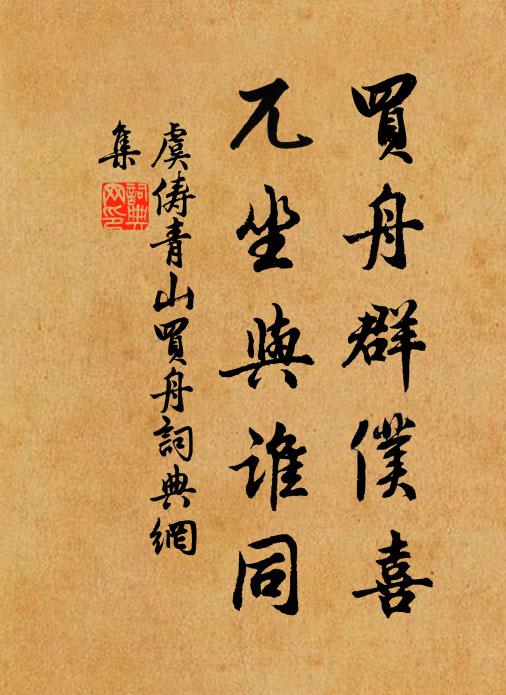 買舟群僕喜
兀坐與誰同
虞儔青山買舟詞典網
集
詞典
网印